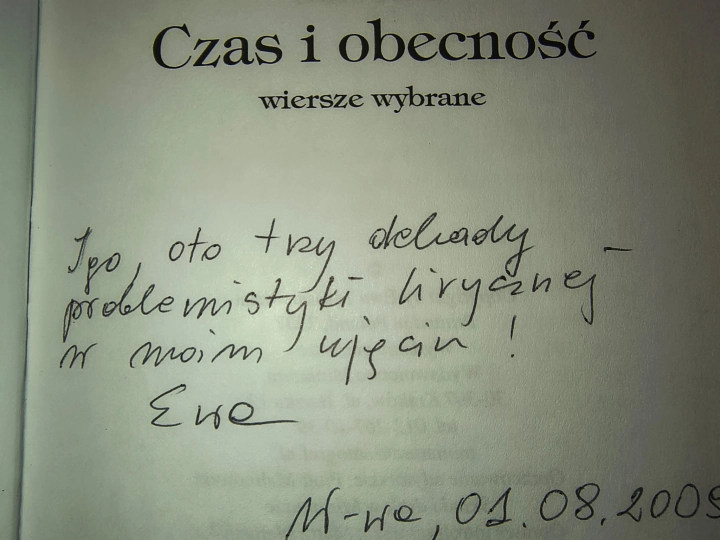 Czas i obecność
wiersze wybrane
Igo, oto trzy dekady –
problemistyki lirycznej
w moim ujęciu!
Ewa
W-wa, 01.08.2009